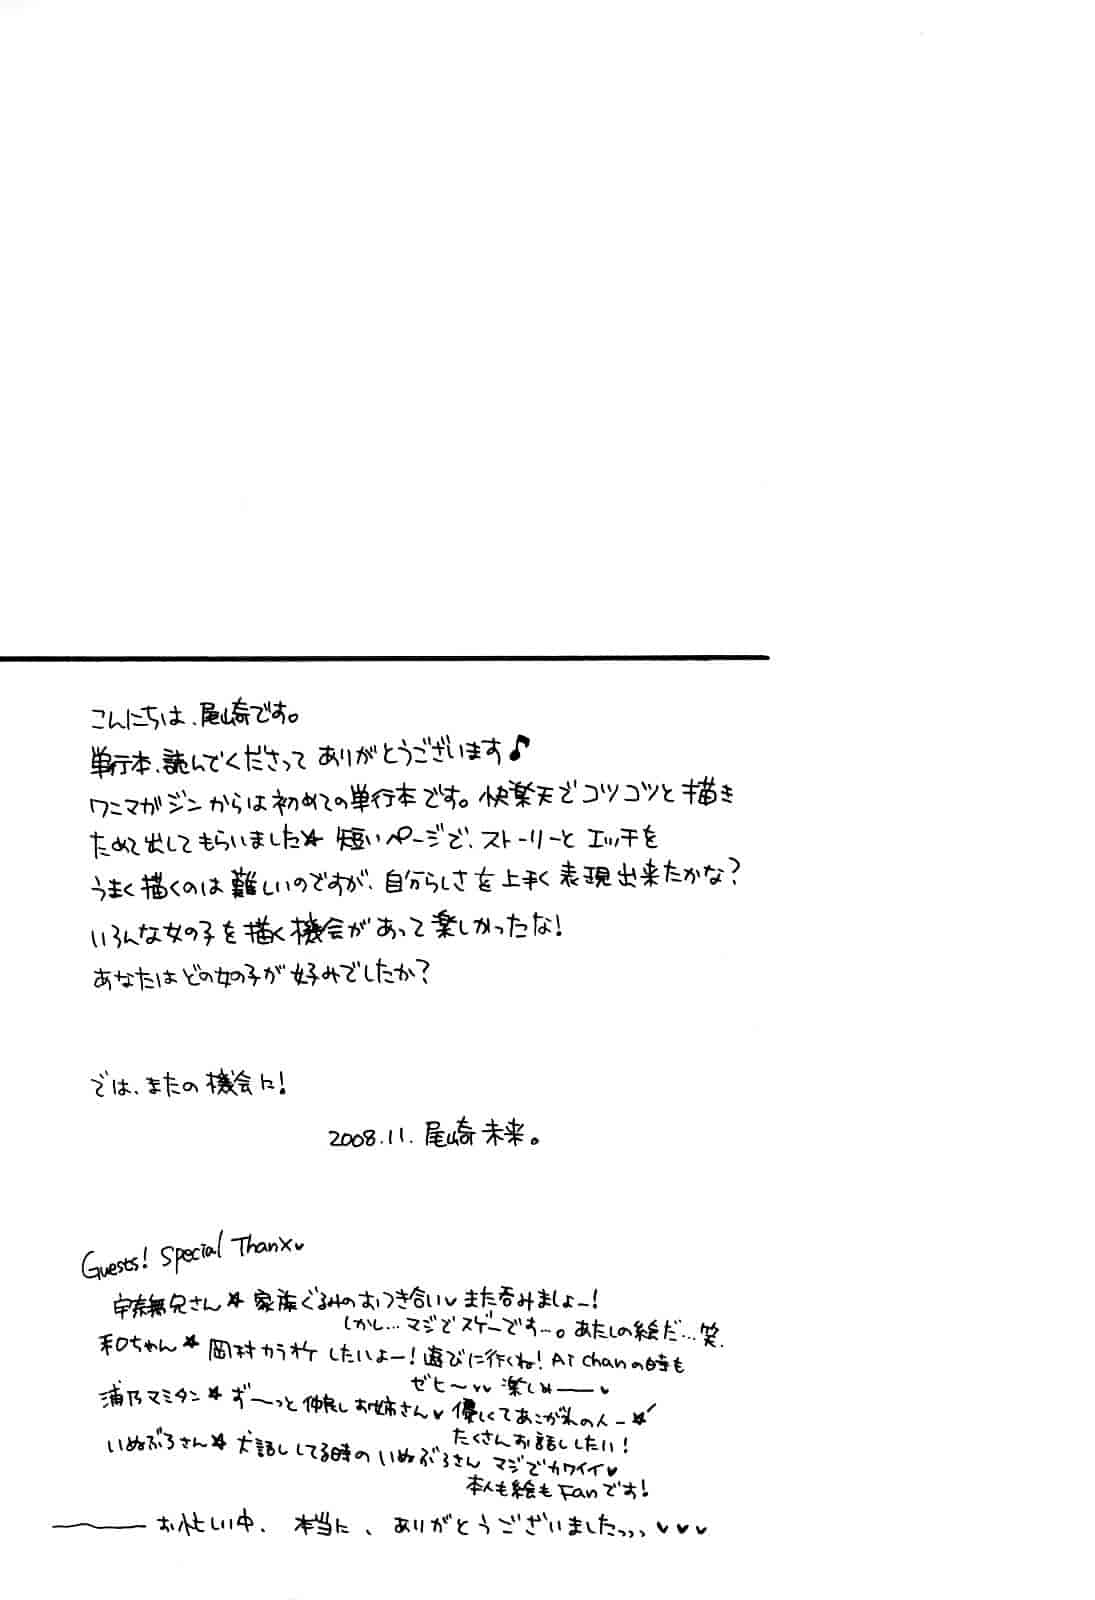 こんにちは、尾崎です。
単行本、読んでくださって ありがとうございます♪
ワニマガジンからは初めての単行本です。快楽天でコツコツと描き
ためて出してもらいました★ 短いページで、ストーリーと エッチを
うまく描くのは難しいのですが、自分らしさを上手く表現出来たかな?
いろんな女の子を描く機会があって楽しかったな!
あなたはどの女の子が好みでしたか?
では、またの機会に!
2008.11. 尾崎未来。
Guests! Special Thanx♥
宇奈無兄さん★ 家族ぐるみのおつき合い♥また呑みましょー!
しかし…マジでスゲーです…。あたしの絵だ…笑.
和ちゃん★ 岡村カラオケしたいよー!遊びに行くね! Ai chanの時も
ゼヒ〜♥♥ 楽しめ――♥
浦乃マミタン★ ず〜っと仲良しお姉さん♥ 優しくてあこがれの人ー★
たくさんお話ししたい!
いぬぶろさん★ 犬話ししてる時の いぬぶろさん マジでカワイイ♥
本人も絵もFanです!
――お忙しい中、本当に、ありがとうございましたっっっ♥♥♥